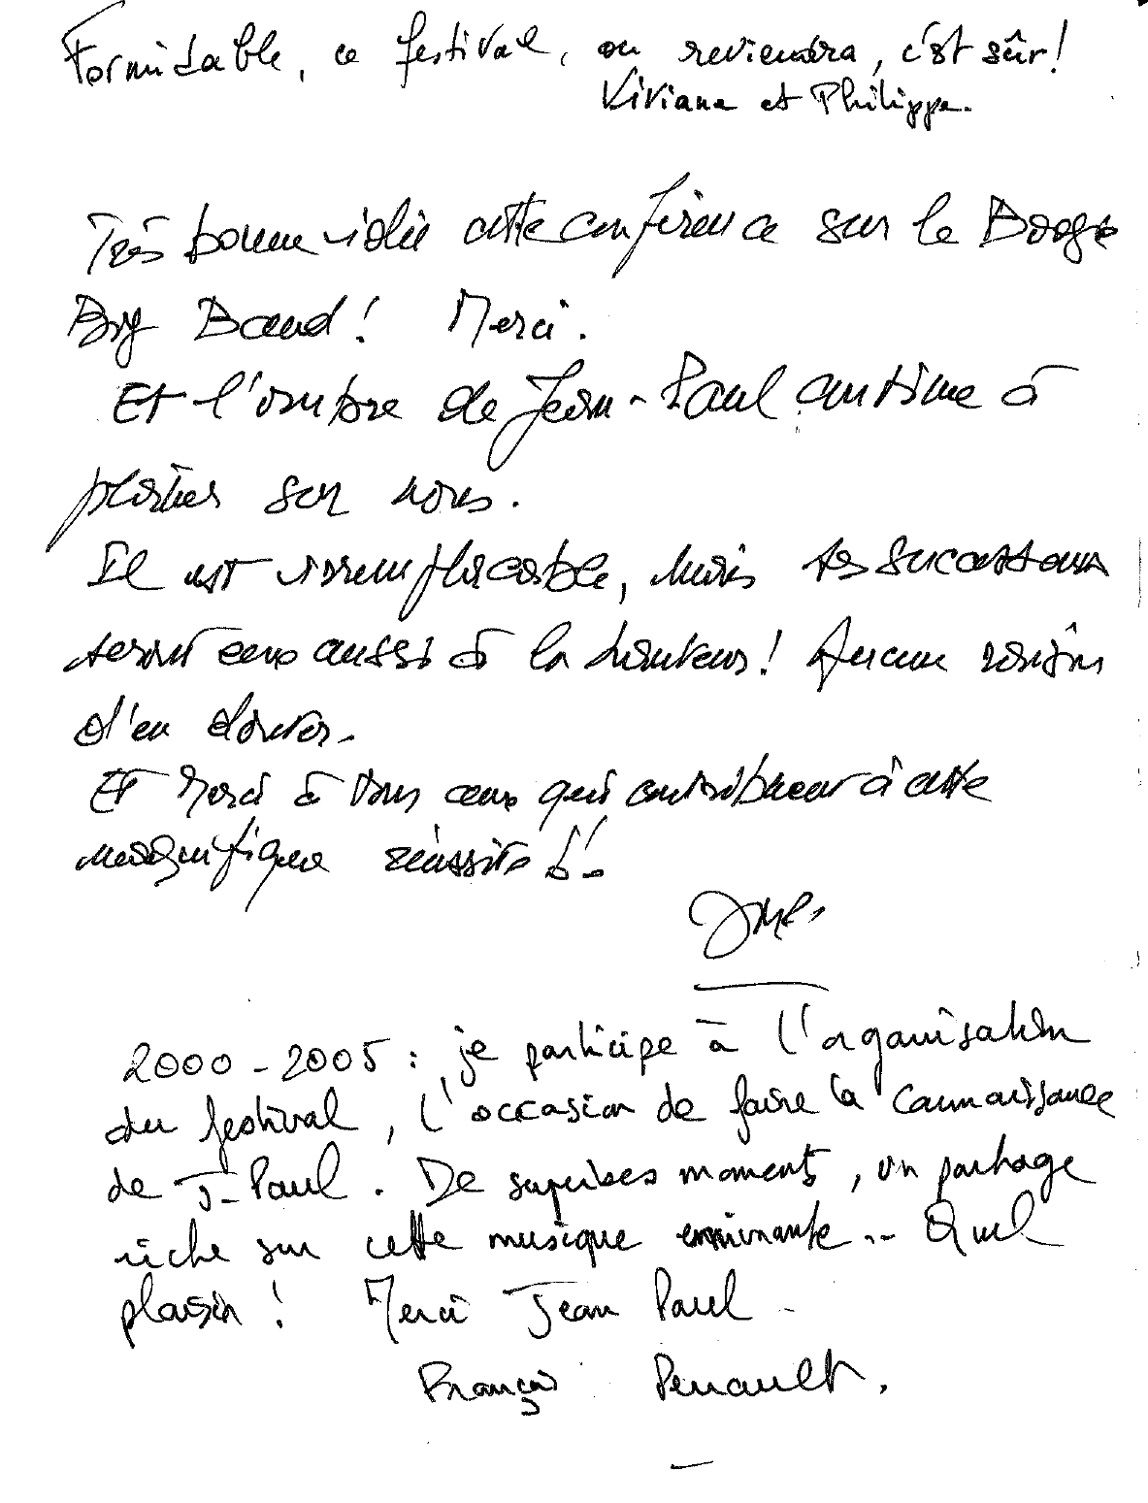 Formidable, ce festival, on reviendra, c'est sûr!
Viviane et Philippe.
Très bonne idée cette conférence sur le Boogie
Big Band! Merci.
Et l'ombre de Jean-Paul continue à
planer sur nous.
Il est irremplaçable, mais ses successeurs
seront eux aussi à la hauteur! Aucune raison
d'en douter.
Et Merci à tous ceux qui contribuent à cette
magnifique réussite!
2000-2005: je participe à l'organisation
du festival, l'occasion de faire la connaissance
de J-Paul. De superbes moments, un partage
riche sur cette musique enivrante.. Quel
plaisir! Merci Jean Paul -
François